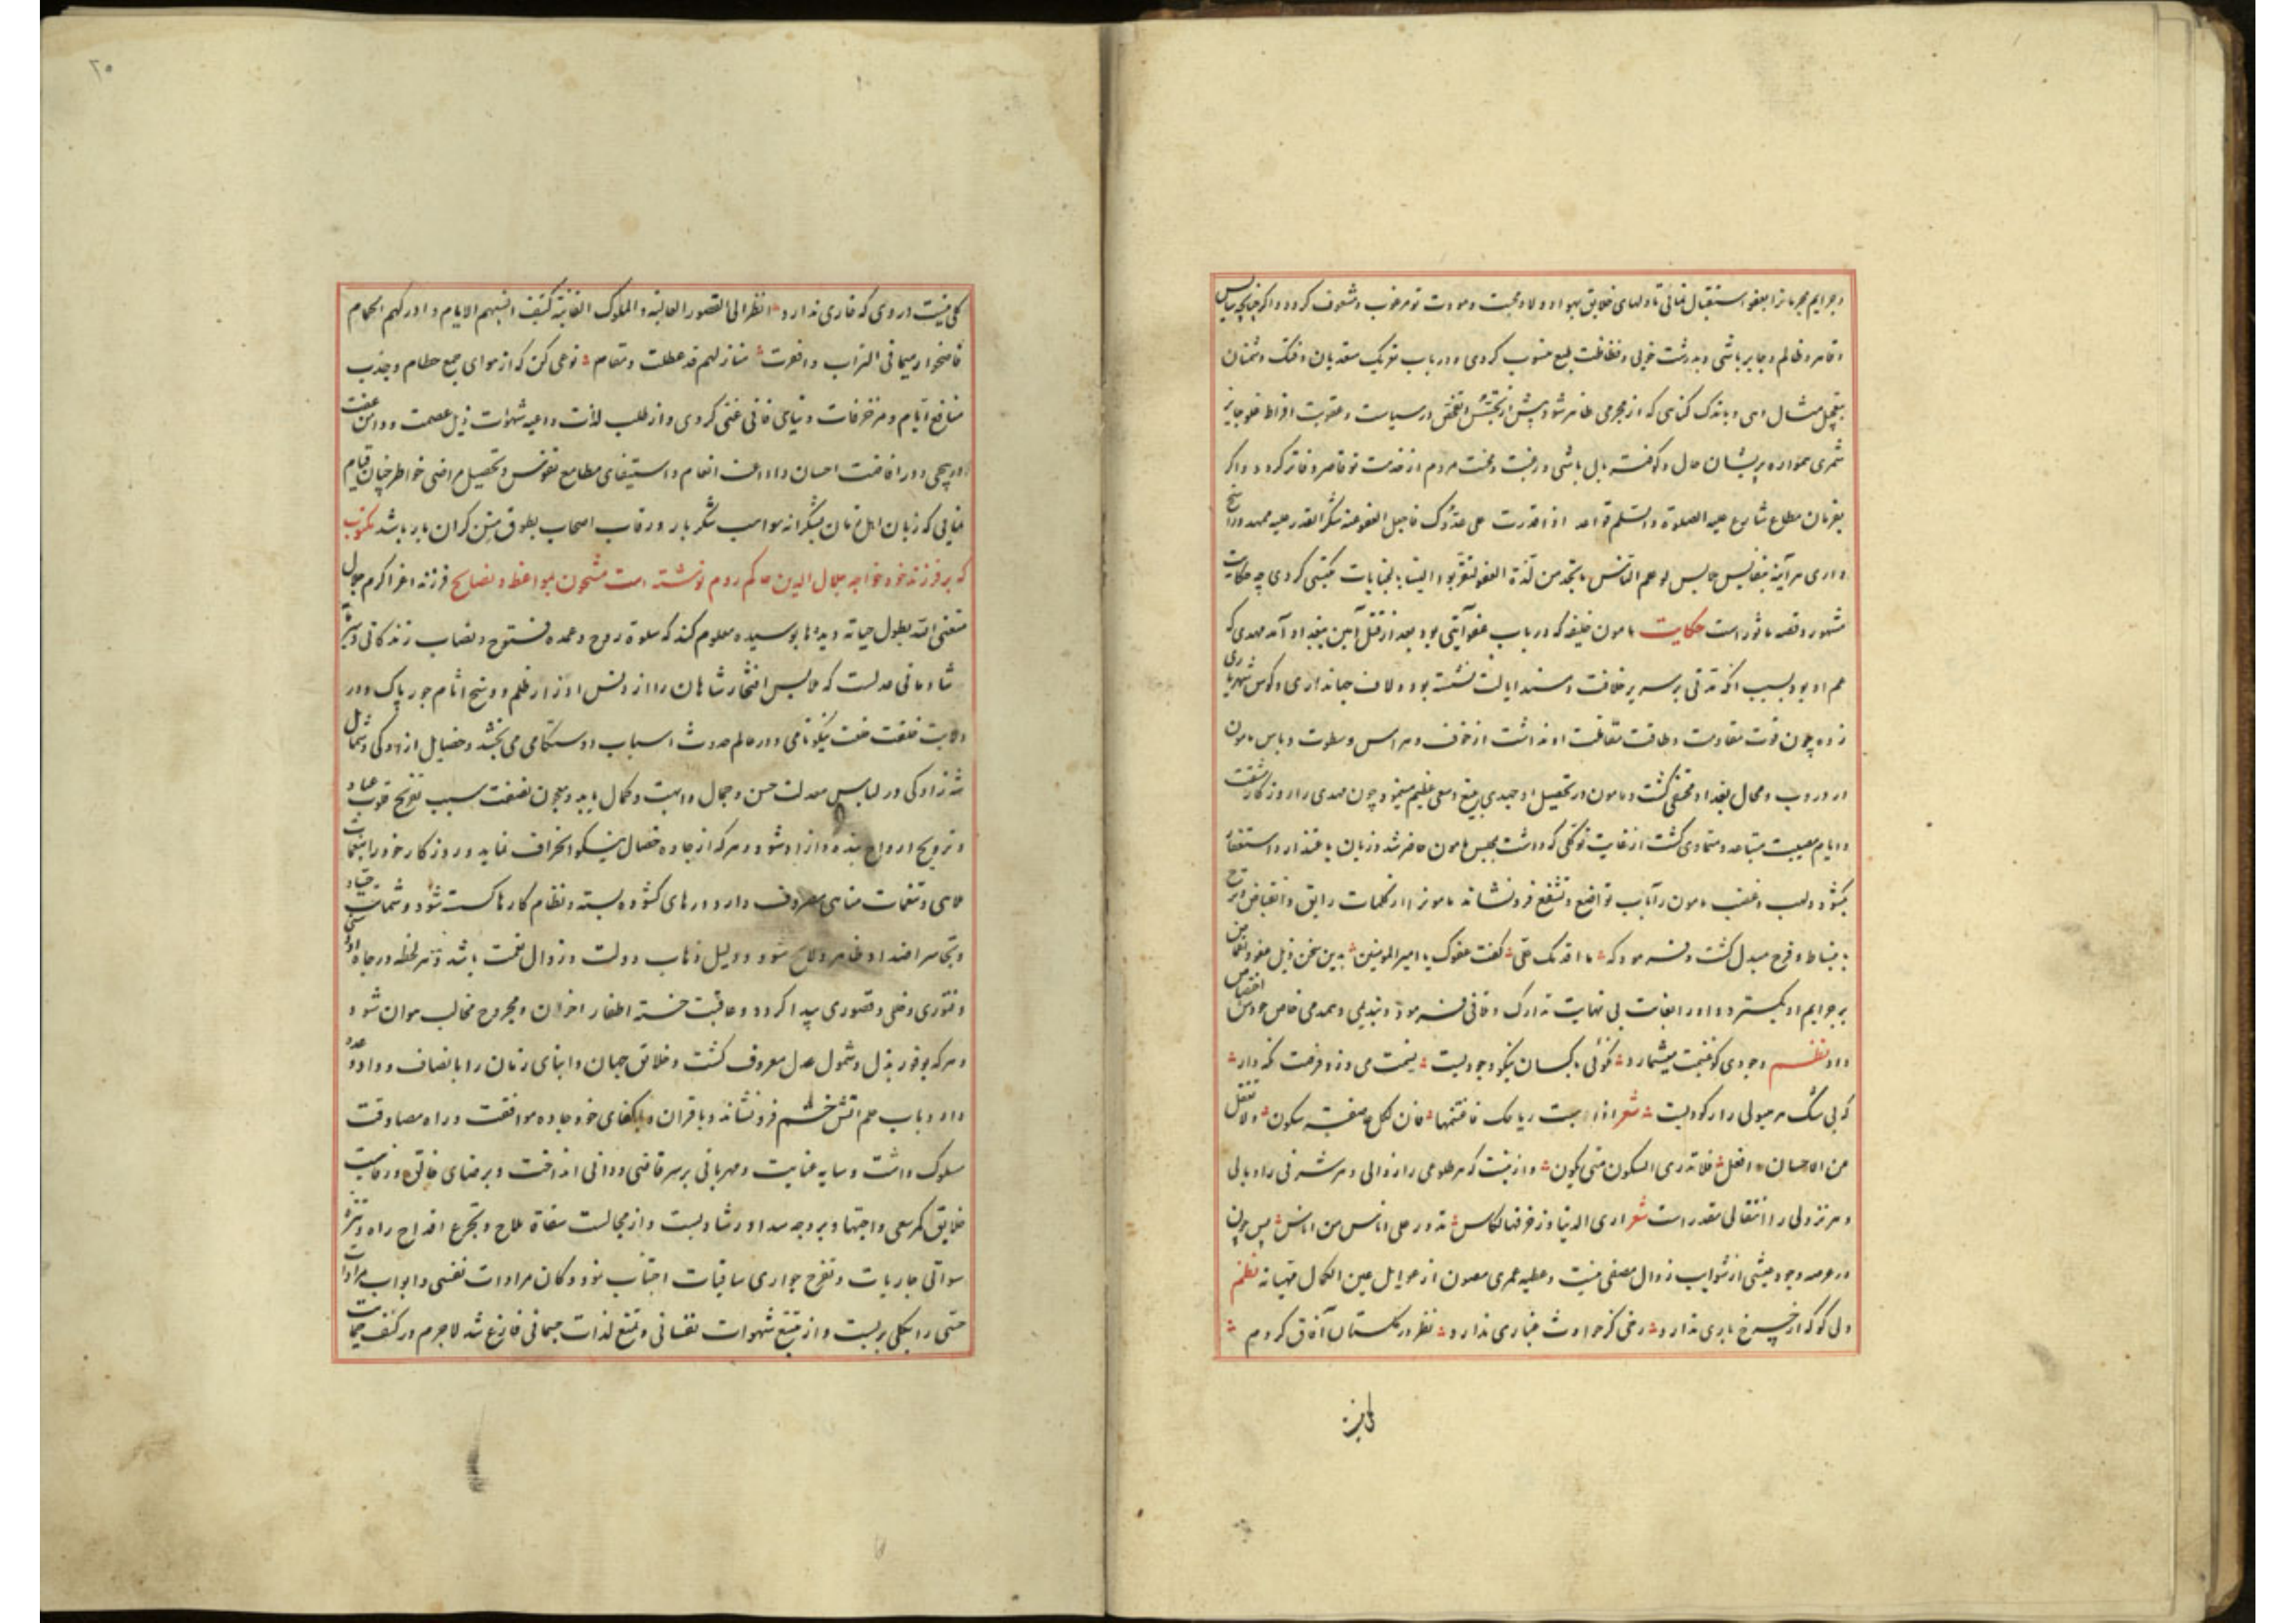 و جرایم مجرمانرا بعفو استقبال نمائی تا دلهای خلایق بهوا و ولا و محبت و مودت تو مرغوب و مشعوف کردد و اکر چنانچه سایس
و قاهر و ظالم و جابر باشی و بدرشت خویی و فظاظت طبع منسوب کردی و در باب تعریک متعدیان و فتک دشمنان
بتعجیل مثال دهی و باندک کناهی که از مجرمی ظاهر شود پیش از تجسس و تفحص در سیاست و عقوبت افراط و غلو جایز
شمری همواره پریشان حال و کوفته بال باشی و رغبت و محبت مردم از خدمت تو قاصر و فاتر کردد و اکر
بفرمان مطاع شارع علیه الصلوة و السلم قواعد اذا قدرت علی عدوک فاجعل العفو عنه شکر القدر علیه ممهد و راسخ
داری هر آینه بنفایس لو علم الناس ما نجد من لذة العفو لتقربوا الینا بالجنایات کردی چه حکایت
مشهور و قصه ماثور است حکایت مامون خلیفه که در باب عفو آیتی بود بعد از قتل امین ببغداد آمد مهدی که
عم او بود بسبب آنکه مدتی بر سریر خلافت و مسند ایالت نشسته بود و لاف جهانداری و کوس شهریاری
زده چون قوت مقاومت و طاقت مقابلت او نداشت از خوف و هراس و سطوت و باس مامون
در دروب و محال بغداد مختفی کشت و مامون در تحصیل او جدی بلیغ و سعی عظیم مینمود چون مهدی را روزکار مشقت
و ایام مصیبت متباعد و متمادی کشت از غایت توکلی که داشت بمجلس مامون حاضر شد و زبان باعتذار و استغفار
بکشود و لهب و غضب مامون را بآب تواضع و تشفع فرو نشاند مامونرا از کلمات رایق و انقباض و ترح
بانبساط و فرح مبدل کشت و فرمود که ما اقدمک علی کفت عفوک یا امیرالمومنین بدین سخن ذیل عفو و اغماض
بر جرایم او بکسترد و او را بغایت بی نهایت تدارک و تلافی فرمود و بندیمی و همدمی خاص خودش اختصاص
داد نظم وجودی کو غنیمت میشمارد کوئی با کسان نیکو وجودیست نسیمت می وزد فرصت نکه دار
که بی شک هر هبوبی را رکودیست شعر اذا هبت ریاحک فاغتنمها فان لکل عاصفة سکون و لا تغفل
من الاحسان افعل فلا تدری السکون متی یکون و از نیست که هر طلوعی را زوالی و هر شرفی را وبالی
و هر نزولی را انتقالی مقدر است شعر اری الدنیا و زخرفها ککاس تدور علی اناس من اناس پس چون
در عرصه وجود عیشی از شوایب زوال مصفی نیست و عطیه عمری مصون از عین الکمال مهیا نه نظم
دلی کو که از چرخ باری ندارد رخی کز حوادث غباری ندارد نظر در کلستان آفاق کردم
کلی نیست در وی که خاری ندارد انظر الی القصور العالیة و الملوک الفانیة کیف انتبهم الایام و ادرکهم الحمام
فاضحوا رمیما فی التراب و اقفرت منازلهم قد عطلت و مقام نوعی کن که از هوای جمع حطام و جذب
منافع ایام و مزخرفات دنیای فانی غنی کردی و از طلب لذات و داعیه شهوات ذیل عصمت و دامن عفت
در پیچی و در افاضت احسان و انعام و استیفای مطامع نفوس و تحصیل مراضی خواطر چنان قیام
نمایی که زبان اهل زمان بشکرانه مواهب شکر بار و رقاب اصحاب بطوق منن کران بار باشد مکتوب
که بر فرزند خود خواجه جلال الدین حاکم روم نوشته است مشحون بمواعظ و نصایح فرزند اعز اکرم جلال
متعنی الله بطول حیاته دیدها بوسیده معلوم کند که سلوة روح و عمده فتوح و نصاب زندکانی و سرمایه
شادمانی عدلست که ملابس افتخار شاهان را از دنس اوزار ظلم و وسخ اثام جور پاک دارد
خلعت نیکونامی و در عالم حدوث اسباب دوستکامی می بخشد و خصایل ازادکی و شمایل
شهزادکی در لباس معدلت حسن و جمال و ابهت و کمال یابد و معجون نصفت سبب تفریح قلوب عباد
و ترویح ارواح بنده و ازاد شود و هر که از جاده خصال نیکو انحراف نماید و روزکار خود را بنغمات
ملاهی و تنعمات مناهی مصروف دارد درهای کشوده بسته و نظام کارها کسسته شود و شماتت حساد
و تجاسر اضداد ظاهر و لایح شود و دلیل ذهاب دولت و زوال نعمت باشد و هر لحظه در جاه او
و فتوری و قصوری پیدا کردد و عاقبت خسته اظفار احزان و مجروح مخالب هوان شود
و هر که بوفور بذل و شمول عدل معروف کشت و خلایق جهان و ابنای زمان را با انصاف و داد
دارد و باب حلم اتش خشم فرو نشاند و با قران و اکفای خود جاده موافقت و راه مصادقت
مسلوک داشت و سایه عنایت و مهربانی بر سر قاصی و دانی انداخت و برضای خالق و رعایت
خلایق کمر سعی و اجتهاد بر وجه سداد و رشاد بست و از مجالست سقاة ملاح و تجرع اقداح راه و
سواقی جاریات و تفرح جواری ساقیات اجتناب نمود و دکان مرادات نفسی و ابواب مرادات
حسی را بکلی بربست و از تتبع شهوات نفسانی و تمتع لذات جسمانی فارغ شد لاجرم در کنف حمایت
کلی نیست